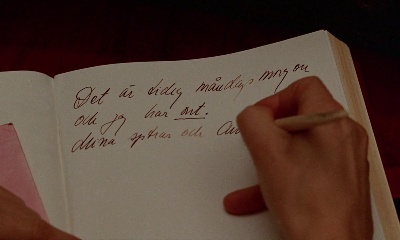 Det är tidig måndagsmorgon
och jag har ont.
dessa systrar och